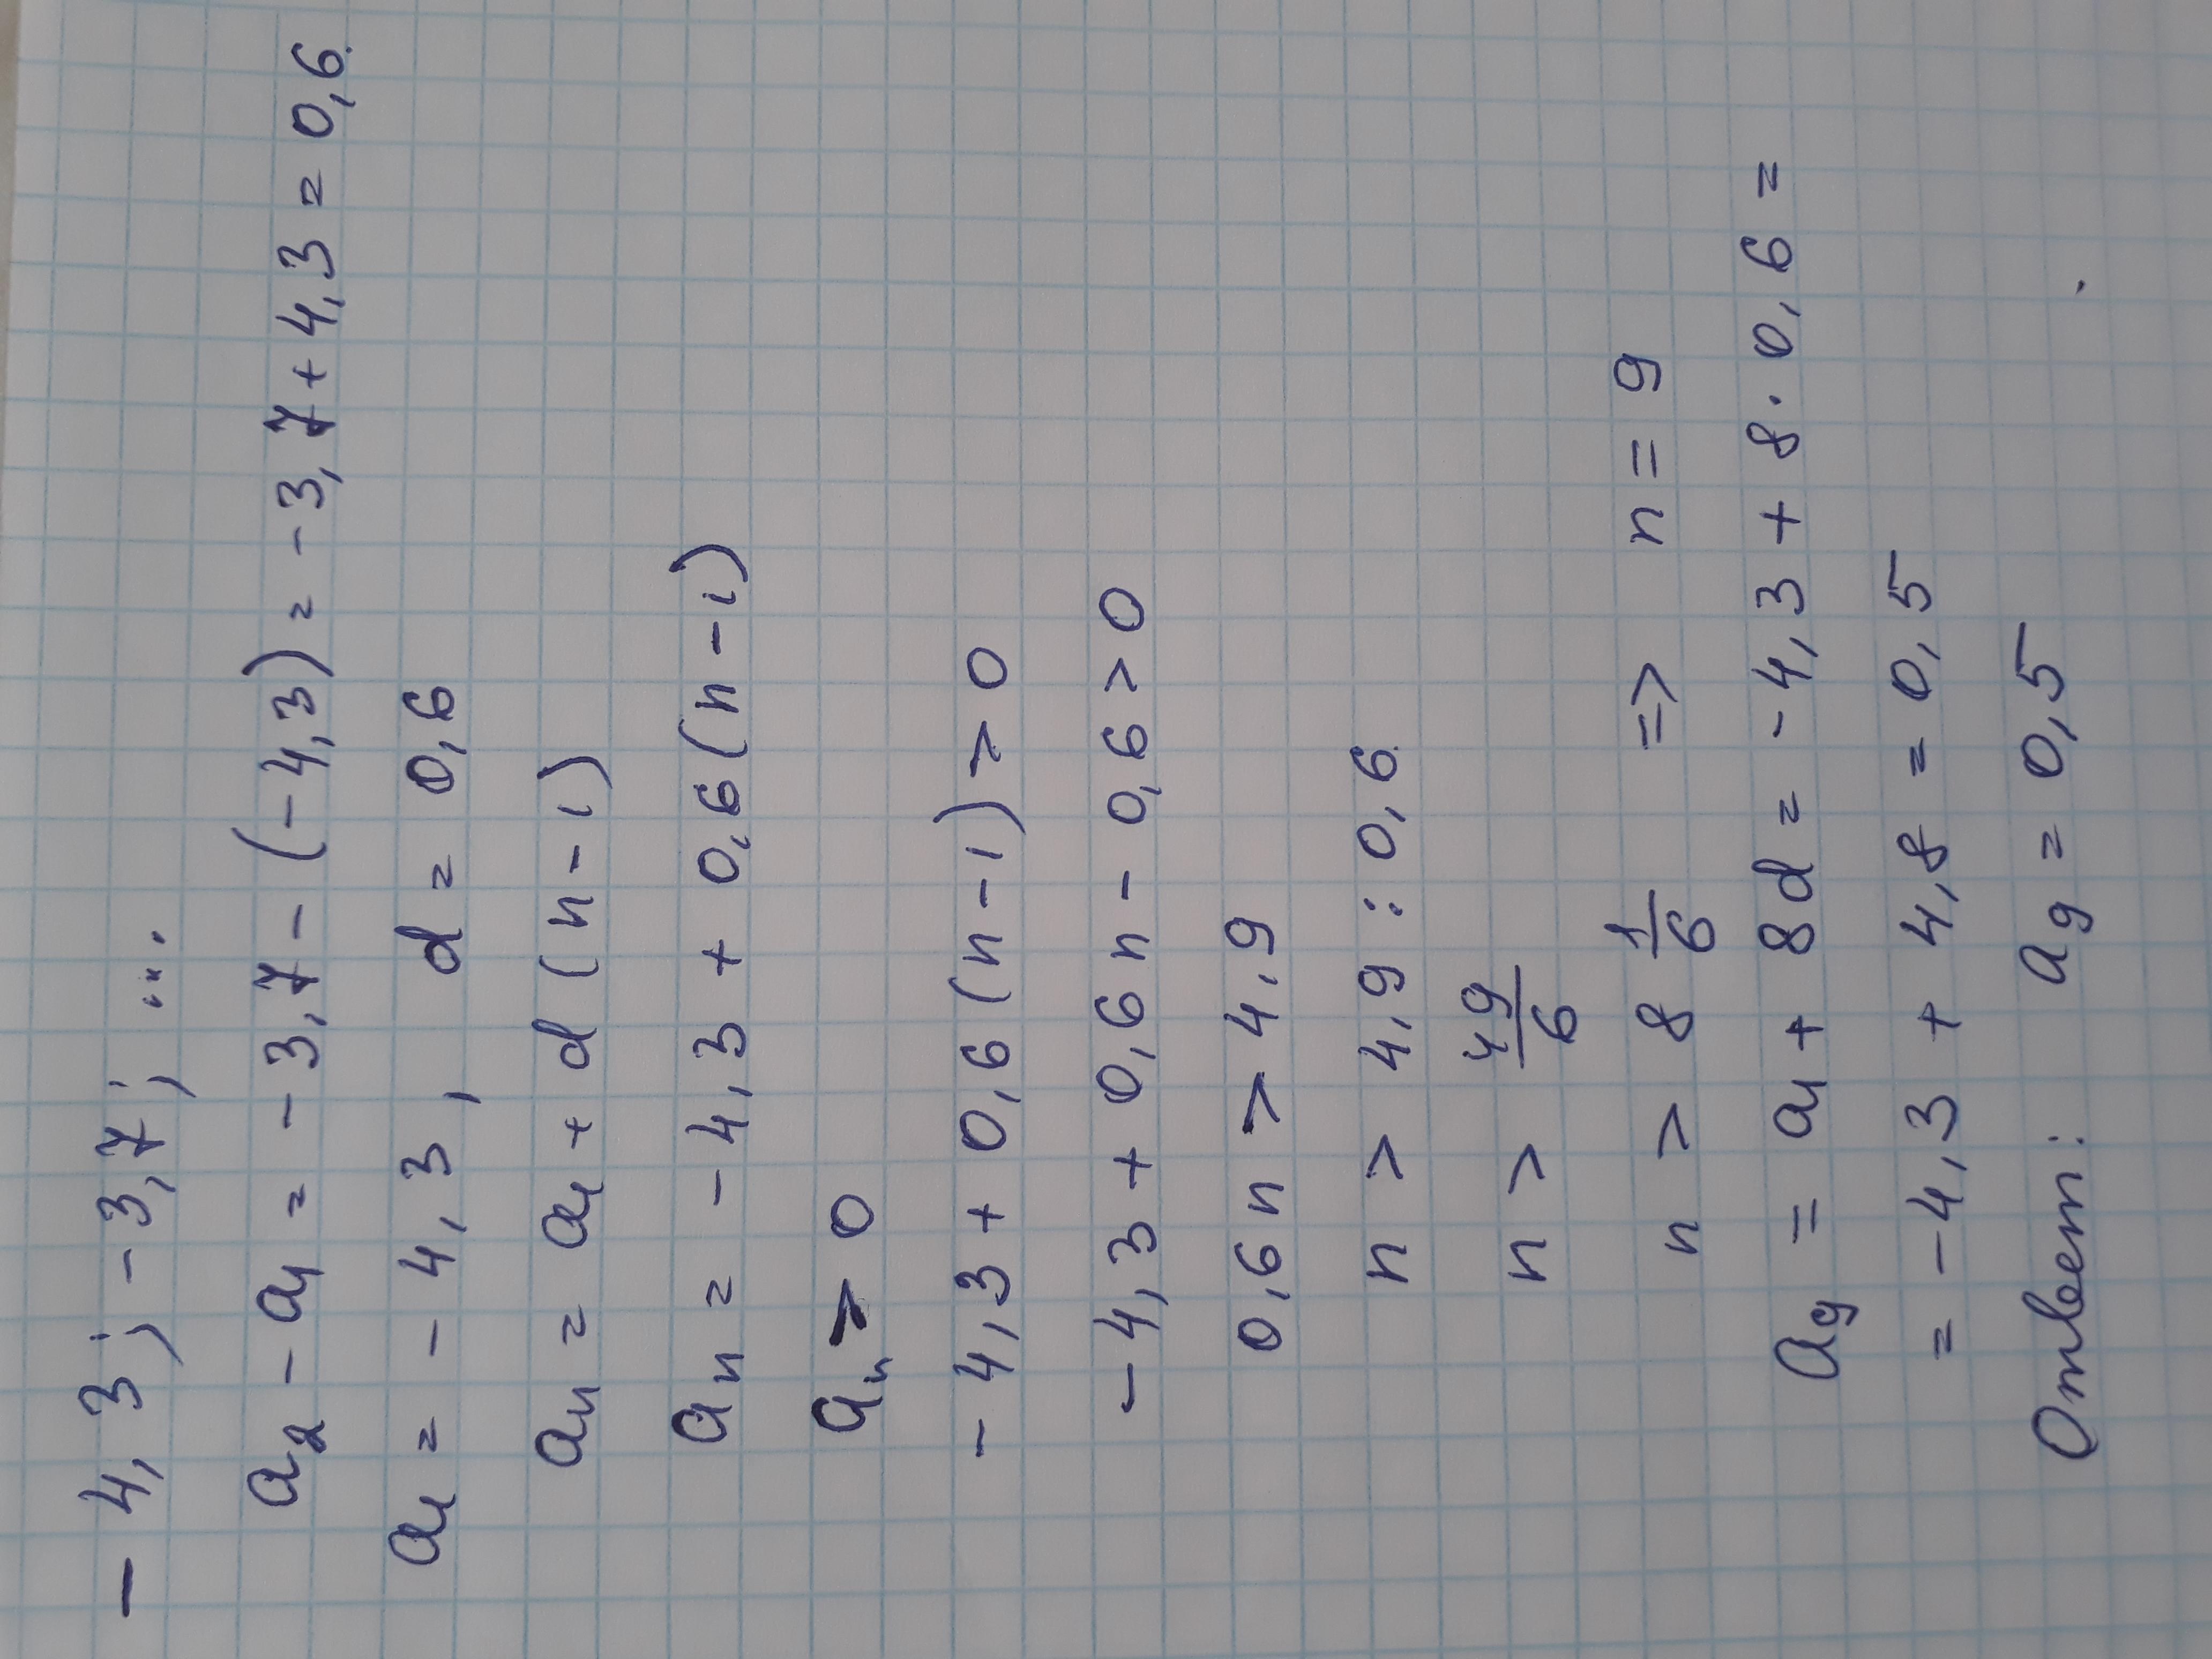 - 4,3; -3,7; ...
a₂ - a₁ = -3,7 - (-4,3) = -3,7 + 4,3 = 0,6.
a₁ = -4,3, d = 0,6
aₙ = a₁ + d (n-1)
aₙ = -4,3 + 0,6(n-1)
aₙ > 0
-4,3 + 0,6(n-1) > 0
-4,3 + 0,6n - 0,6 > 0
0,6n > 4,9
n > 4,9 : 0,6
n > 49/6
n > 8 1/6 => n = 9
a₉ = a₁ + 8d = -4,3 + 8·0,6 =
= -4,3 + 4,8 = 0,5
Ответ: a₉ = 0,5